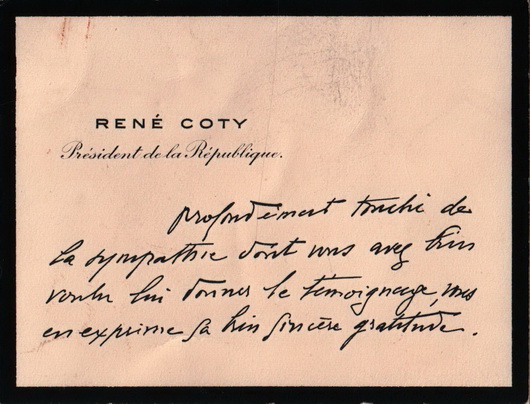 RENÉ COTY
Président de la République.
profondément touché de
la sympathie dont vous avez bien
voulu lui donner le témoignage, vous
en exprime sa bien sincère gratitude.